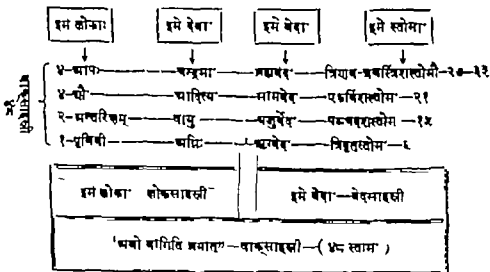 इमे लोकाः इमे देवाः इमे वेदाः इमे स्तोमाः
४-आपः चन्द्रमा ब्रह्मवेद त्रिणव-त्रयस्त्रिंशस्तोमौ-२७-३३
४-द्यौ आदित्य सामवेद एकविंशस्तोम-२१
२-अन्तरिक्षम् वायु यजुर्वेद पञ्चदशस्तोम-१५
१-पृथिवी अग्निः ऋग्वेद त्रिवृतस्तोम-६
वाक्साहस्री
४८
इमे लोका लोकसाहस्री इमे वेदा-वेदसाहस्री
"अथो वागिति ब्रूयात्"-वाक्साहस्री-(४८ स्तोम)